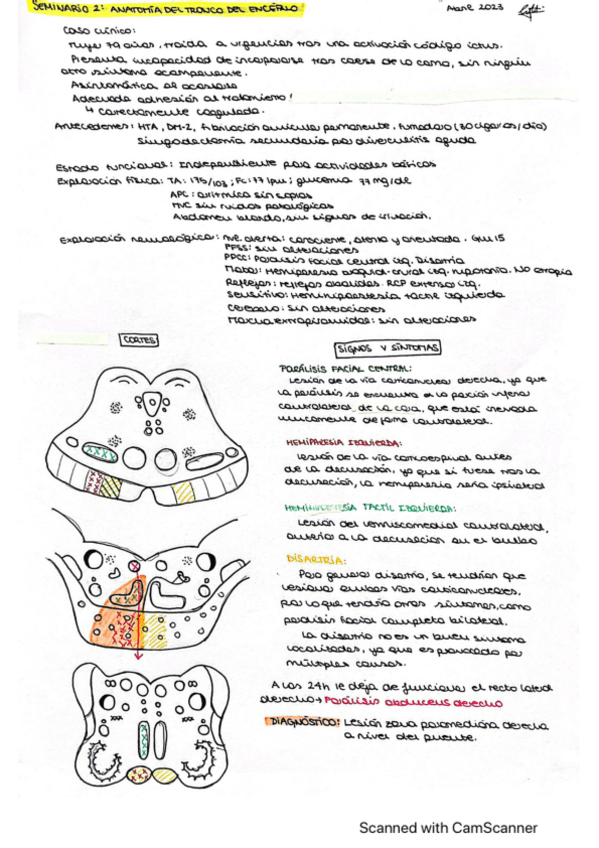 SEMINARIO 2: ANATOMÍA DEL TRONCO DEL ENCÉFALO
2023
Caso clínico:
Mujer 79 años, traída a urgencias tras una activación código ictus.
Presenta incapacidad de incorporarse tras caerse de la cama, sin ningún
otro síntoma acompañante.
Asintomática al acostarse
Adecuada adhesión al tratamiento!
↳ Correctamente coagulada.
Antecedentes: HTA, DM-2, fibrilación auricular permanente, fumadora (30 cigarros/día)
Sigmoidectomía secundaria por diverticulitis aguda
Estado funcional: Independiente para actividades básicas
Exploración física: TA: 175/103; FC: 77 lpm; glucemia 77 mg/dL
APC: arrítmica sin soplos
MVC sin ruidos patológicos
Abdomen blando, sin signos de irritación.
Exploración neurológica: alerta: consciente, atenta y orientada.
PPSS: sin alteraciones
PPCC: Parálisis facial central izq. Disartria
Motor: Hemiparesia braquio-crural izq. hipotonía. No atrofia
Reflejos: reflejos abolidos. RCP extensor izq.
Sensitivo: Hemihipoestesia táctil izquierda
Cerebelo: sin alteraciones
Marcha extrapiramidal: sin alteraciones
CORTES
SIGNOS Y SÍNTOMAS
PARÁLISIS FACIAL CENTRAL:
Lesión de la vía corticonuclear derecha, ya que
la parálisis se encuentra en la porción inferior
contralateral de la cara, que está inervada
únicamente de forma contralateral.
HEMIPARESIA IZQUIERDA:
Lesión de la vía corticoespinal antes
de la decusación, ya que si fuese tras la
decusación, la hemiparesia sería ipsilateral
HEMIHIPOESTESIA TÁCTIL IZQUIERDA:
Lesión del lemnisco medial contralateral,
anterior a la decusación en el bulbo
DISARTRIA:
Para generar disartria, se tendrían que
lesionar ambas vías corticonucleares,
por lo que tendría otros síntomas, como
parálisis facial completa bilateral.
La disartria no es un buen síntoma
localizador, ya que es provocado por
múltiples causas.
A las 24h le deja de funcionar el recto lateral
derecho → Parálisis abducens derecho
DIAGNÓSTICO: Lesión zona paramediana derecha
a nivel del puente.
Scanned with CamScanner